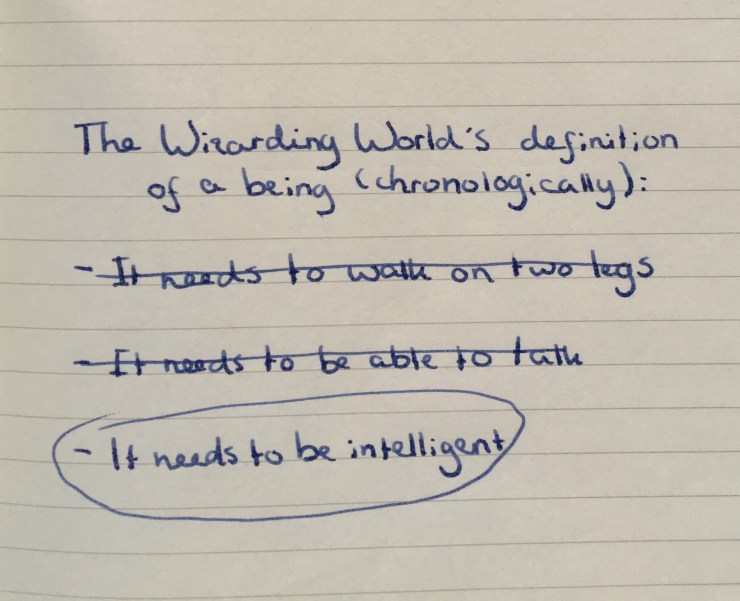 The Wizarding World's definition
of a being (chronologically):
- It needs to walk on two legs
- It needs to be able to talk
- It needs to be intelligent